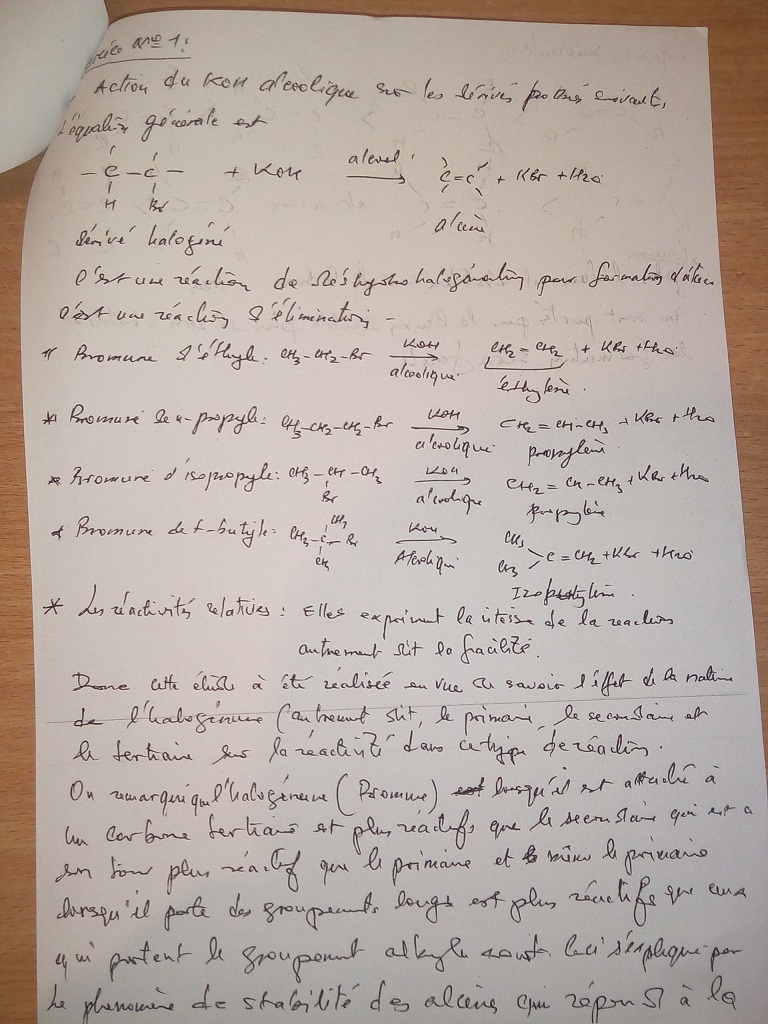 Exercice n° 1:
Action du KOH alcoolique sur les dérivés bromés suivants,
L'équation générale est
- C - C - + KOH alcool C = C + KBr + H2O
H Br alcène
dérivé halogéné
C'est une réaction de déshydrohalogénation par formation d'alcène
c'est une réaction d'élimination -
* Bromure d'éthyle: CH3-CH2-Br KOH alcoolique CH2=CH2 + KBr + H2O
éthylène.
* Bromure de n-propyle: CH3-CH2-CH2-Br KOH alcoolique CH2=CH-CH3 + KBr + H2O
propylène
* Bromure d'isopropyle: CH3-CH-CH3 KOH alcoolique CH2=CH-CH3 + KBr + H2O
Br propylène
* Bromure de t-butyle: CH3-C-Br KOH Alcoolique C=CH2 + KBr + H2O
CH3 CH3 CH3 CH3
Isobutylène.
* Les réactivités relatives: Elles expriment la vitesse de la reaction
autrement dit la facilité.
Donc cette étude à été réalisée en vue de savoir l'effet de la nature
de l'halogénure (autrement dit, le primaire, le secondaire et
le tertiaire sur la réactivité dans ce type de réaction.
On remarque que l'halogénure (Bromure) lorsqu'il est attaché à
un carbone tertiaire est plus réactifs que le secondaire qui est a
son tour plus réactif que le primaire et même le primaire
lorsqu'il porte des groupements longs est plus réactifs que ceux
qui portent le groupement alkyle court. Ceci s'explique par
le phenomène de stabilité des alcènes qui répond à la